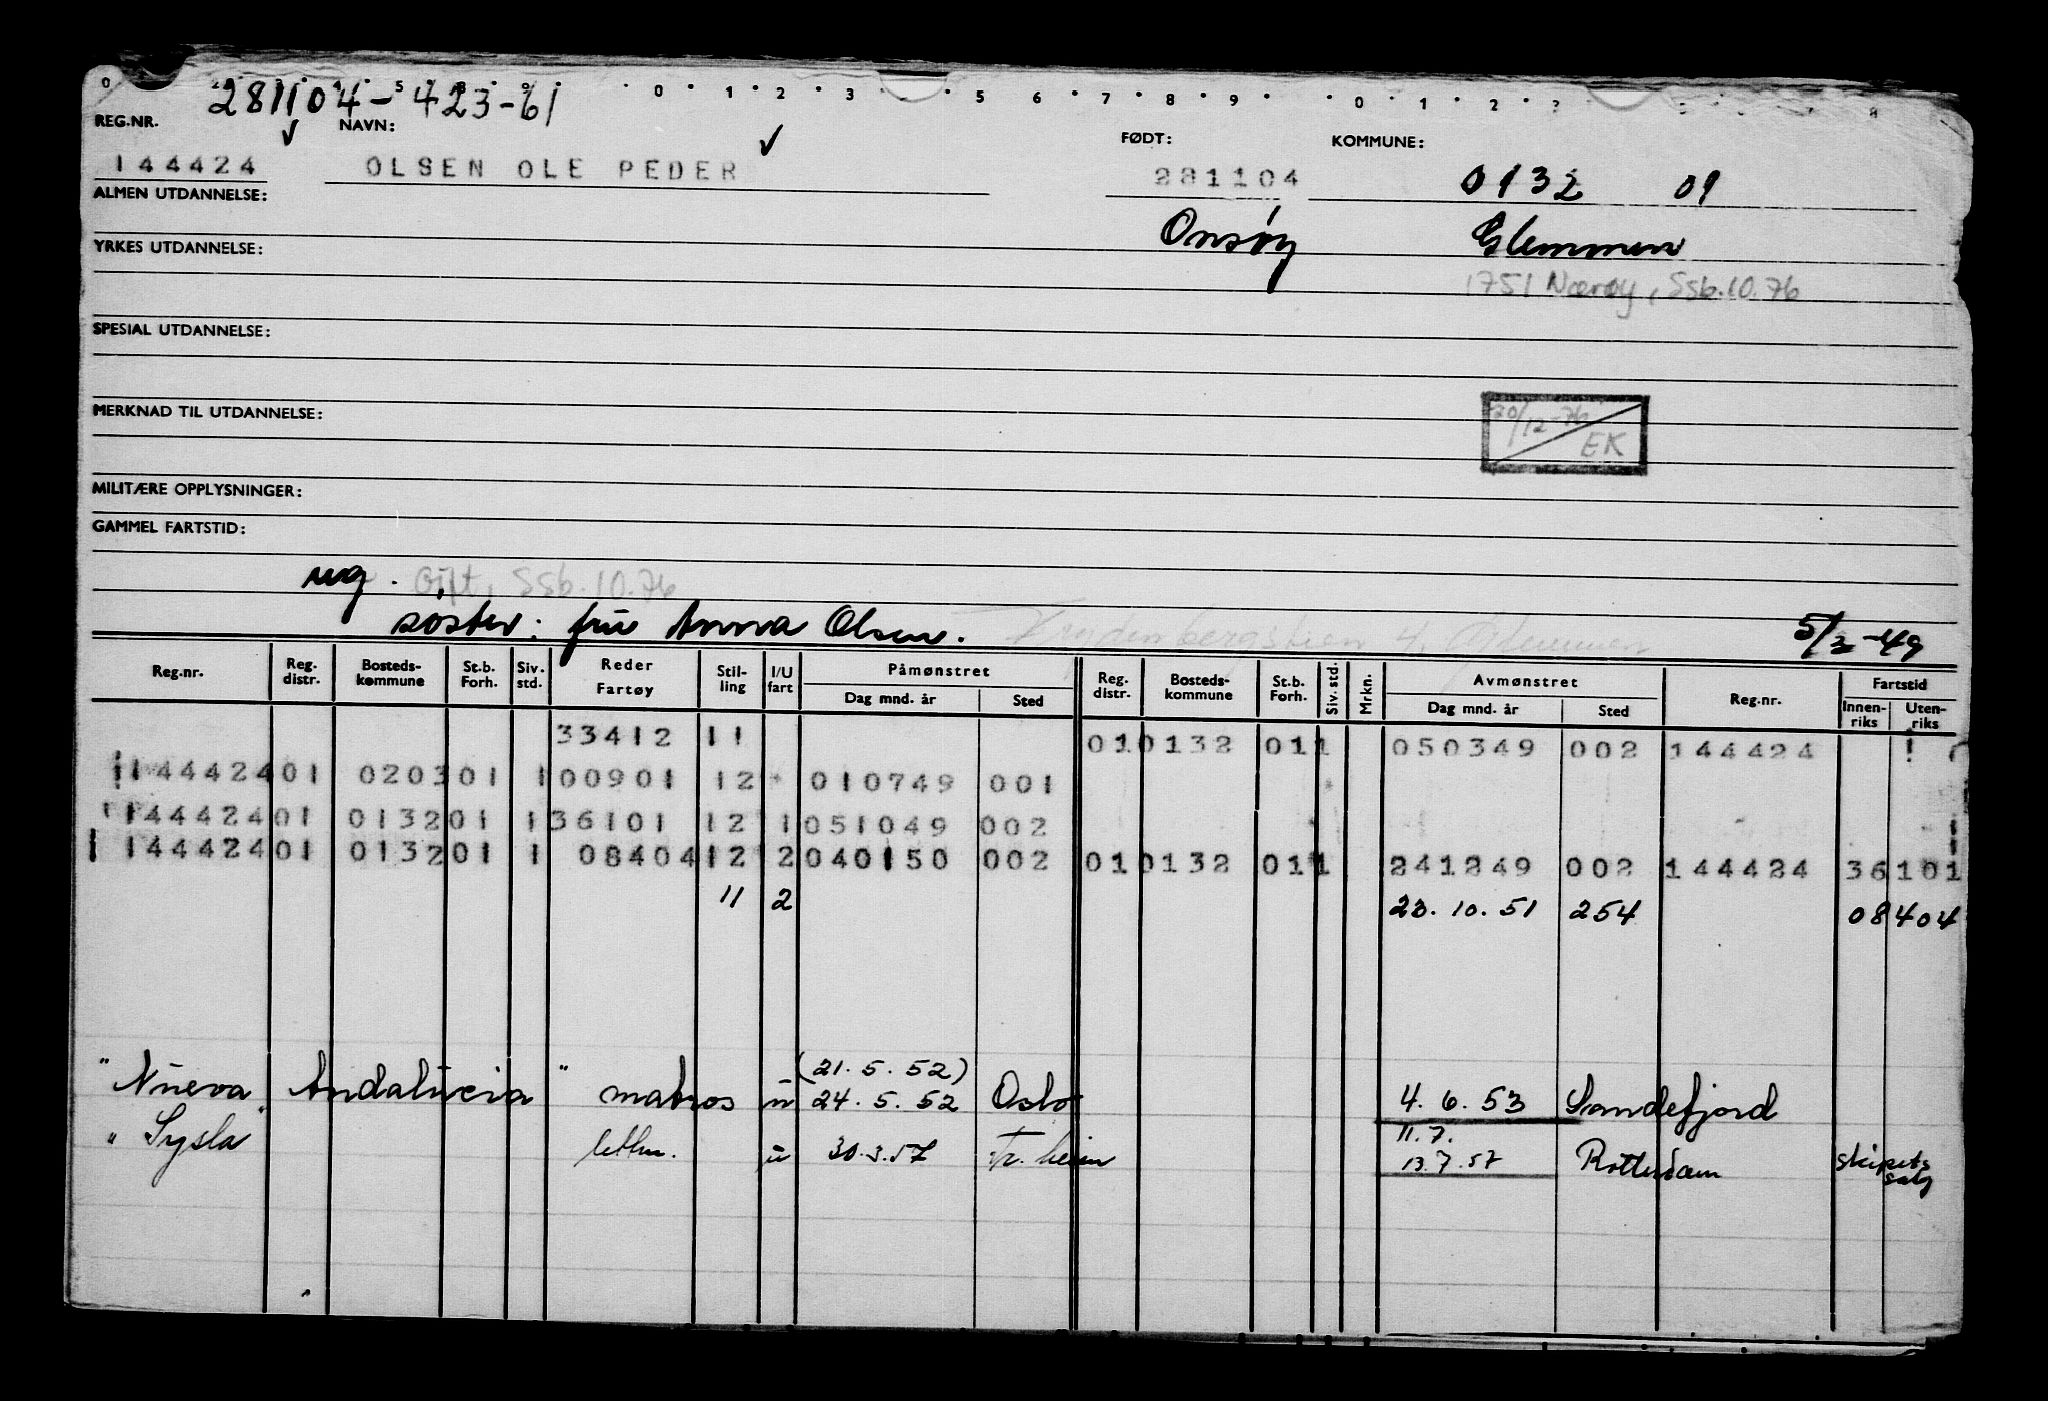 281104-423-61
REG.NR. NAVN: FØDT: KOMMUNE:
144424 OLSEN OLE PEDER 281104 0132 01
ALMEN UTDANNELSE: Onsøy Glemmen
YRKES UTDANNELSE:
1751 Nærøy, Ssb.10.76
SPESIAL UTDANNELSE:
MERKNAD TIL UTDANNELSE:
20/12-76 EK
MILITÆRE OPPLYSNINGER:
GAMMEL FARTSTID:
ug. Gift, Ssb.10.76
søster: fru Anna Olsen. Glemmen 5/3-49
Reg.nr. Reg. distr. Bosteds-kommune St.b. Forh. Siv. std. Reder Fartøy Stil-ling I/U fart Påmønstret Dag mnd. år Sted Reg. distr. Bosteds-kommune St.b. Forh. Siv. std. Mrkn. Avmønstret Dag mnd. år Sted Reg.nr. Fartstid Innen-riks Uten-riks
33412 11 010132 011 050349 002 144424
144424 01 0203 01 1 00901 12 010749 001
144424 01 0132 01 1 36101 12 1 051049 002
144424 01 0132 01 1 08404 12 2 040150 002 010132 011 241249 002 144424 36101
11 2 23.10.51 254 08404
(21.5.52)
"Nueva Andalucia" matros u 24.5.52 Oslo 4.6.53 Sandefjord
11.7.
"Sysla" lettm. u 30.3.57 Tr.heim 13.7.57 Rotterdam skipets salg